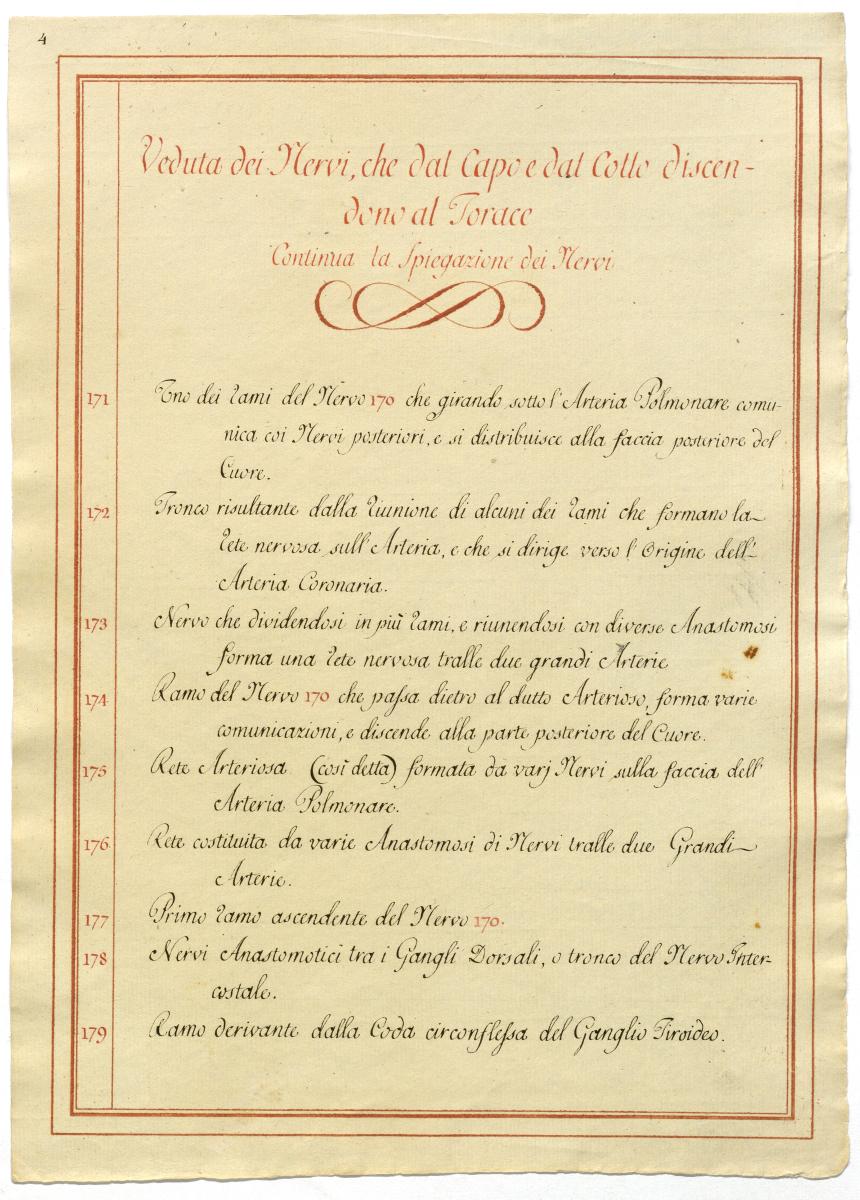 4
Veduta dei Nervi, che dal Capo e dal Collo discen-
dono al Torace
Continua la Spiegazione dei Nervi
171 Uno dei rami del Nervo 170 che girando sotto l'Arteria Polmonare comu-
nica coi Nervi posteriori, e si distribuisce alla faccia posteriore del
Cuore.
172 Tronco risultante dalla riunione di alcuni dei rami che formano la
rete nervosa sull'Arteria, e che si dirige verso l'Origine dell'
Arteria Coronaria.
173 Nervo che dividendosi in più rami, e riunendosi con diverse Anastomosi
forma una rete nervosa tralle due grandi Arterie
174 Ramo del Nervo 170 che passa dietro al dutto Arterioso, forma varie
comunicazioni, e discende alla parte posteriore del Cuore.
175 Rete Arteriosa (così detta) formata da varj Nervi sulla faccia dell'
Arteria Polmonare.
176 Rete costituita da varie Anastomosi di Nervi tralle due Grandi
Arterie.
177 Primo ramo ascendente del Nervo 170.
178 Nervi Anastomotici tra i Gangli Dorsali, o tronco del Nervo Inter-
costale.
179 Ramo derivante dalla Coda circonflessa del Ganglio Tiroideo.